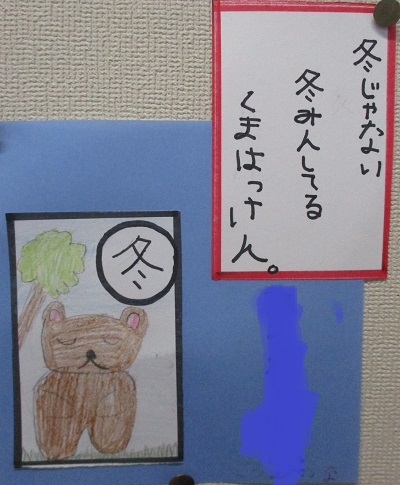 冬じゃない
冬みんしてる
くまはっけん。
冬